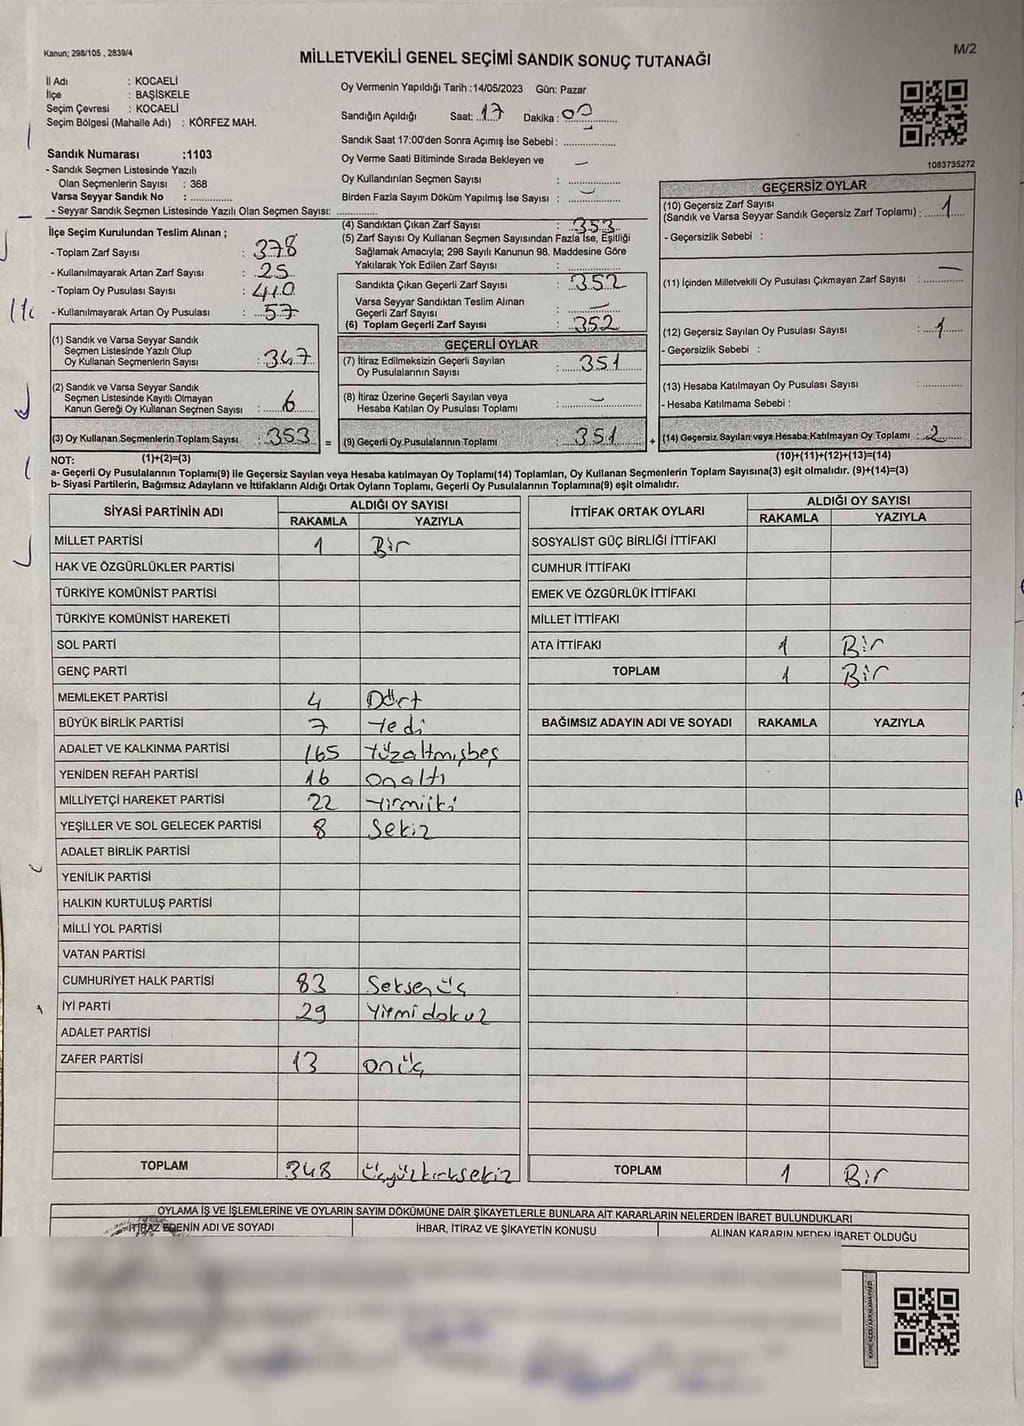 Kanun; 298/105 , 2839/4
MİLLETVEKİLİ GENEL SEÇİMİ SANDIK SONUÇ TUTANAĞI
M/2
İl Adı : KOCAELİ
İlçe : BAŞİSKELE
Seçim Çevresi : KOCAELİ
Seçim Bölgesi (Mahalle Adı) : KÖRFEZ MAH.
Sandık Numarası :1103
- Sandık Seçmen Listesinde Yazılı
Olan Seçmenlerin Sayısı : 368
Varsa Seyyar Sandık No : ..............
- Seyyar Sandık Seçmen Listesinde Yazılı Olan Seçmen Sayısı: ..............
İlçe Seçim Kurulundan Teslim Alınan ;
- Toplam Zarf Sayısı : 378
- Kullanılmayarak Artan Zarf Sayısı : 25
- Toplam Oy Pusulası Sayısı : 410
- Kullanılmayarak Artan Oy Pusulası : 57
(1) Sandık ve Varsa Seyyar Sandık
Seçmen Listesinde Yazılı Olup
Oy Kullanan Seçmenlerin Sayısı : 347
(2) Sandık ve Varsa Seyyar Sandık
Seçmen Listesinde Kayıtlı Olmayan
Kanun Gereği Oy Kullanan Seçmen Sayısı : 6
(3) Oy Kullanan Seçmenlerin Toplam Sayısı : 353 =
Oy Vermenin Yapıldığı Tarih :14/05/2023 Gün: Pazar
Sandığın Açıldığı Saat: 17 Dakika : 00
Sandık Saat 17:00'den Sonra Açımış İse Sebebi : ..............
Oy Verme Saati Bitiminde Sırada Bekleyen ve
Oy Kullandırılan Seçmen Sayısı : —
Birden Fazla Sayım Döküm Yapılmış İse Sayısı : —
(4) Sandıktan Çıkan Zarf Sayısı : 353
(5) Zarf Sayısı Oy Kullanan Seçmen Sayısından Fazla İse, Eşitliği
Sağlamak Amacıyla; 298 Sayılı Kanunun 98. Maddesine Göre
Yakılarak Yok Edilen Zarf Sayısı : ..............
Sandıkta Çıkan Geçerli Zarf Sayısı : 352
Varsa Seyyar Sandıktan Teslim Alınan
Geçerli Zarf Sayısı : —
(6) Toplam Geçerli Zarf Sayısı : 352
GEÇERLİ OYLAR
(7) İtiraz Edilmeksizin Geçerli Sayılan
Oy Pusulalarının Sayısı : 351
(8) İtiraz Üzerine Geçerli Sayılan veya
Hesaba Katılan Oy Pusulası Toplamı : —
(9) Geçerli Oy Pusulalarının Toplamı : 351 +
1083735272
GEÇERSİZ OYLAR
(10) Geçersiz Zarf Sayısı
(Sandık ve Varsa Seyyar Sandık Geçersiz Zarf Toplamı) : 1
- Geçersizlik Sebebi :
(11) İçinden Milletvekili Oy Pusulası Çıkmayan Zarf Sayısı : —
(12) Geçersiz Sayılan Oy Pusulası Sayısı : 1
- Geçersizlik Sebebi :
(13) Hesaba Katılmayan Oy Pusulası Sayısı : ..............
- Hesaba Katılmama Sebebi :
(14) Geçersiz Sayılan veya Hesaba Katılmayan Oy Toplamı : 2
NOT: (1)+(2)=(3) (10)+(11)+(12)+(13)=(14)
a- Geçerli Oy Pusulalarının Toplamı(9) ile Geçersiz Sayılan veya Hesaba katılmayan Oy Toplamı(14) Toplamları, Oy Kullanan Seçmenlerin Toplam Sayısına(3) eşit olmalıdır. (9)+(14)=(3)
b- Siyasi Partilerin, Bağımsız Adayların ve İttifakların Aldığı Ortak Oyların Toplamı, Geçerli Oy Pusulalarının Toplamına(9) eşit olmalıdır.
SİYASİ PARTİNİN ADI ALDIĞI OY SAYISI
RAKAMLA YAZIYLA
MİLLET PARTİSİ 1 Bir
HAK VE ÖZGÜRLÜKLER PARTİSİ
TÜRKİYE KOMÜNİST PARTİSİ
TÜRKİYE KOMÜNİST HAREKETİ
SOL PARTİ
GENÇ PARTİ
MEMLEKET PARTİSİ 4 Dört
BÜYÜK BİRLİK PARTİSİ 7 Yedi
ADALET VE KALKINMA PARTİSİ 165 Yüzaltmışbeş
YENİDEN REFAH PARTİSİ 16 onaltı
MİLLİYETÇİ HAREKET PARTİSİ 22 Yirmiiki
YEŞİLLER VE SOL GELECEK PARTİSİ 8 Sekiz
ADALET BİRLİK PARTİSİ
YENİLİK PARTİSİ
HALKIN KURTULUŞ PARTİSİ
MİLLİ YOL PARTİSİ
VATAN PARTİSİ
CUMHURİYET HALK PARTİSİ 83 Seksenüç
İYİ PARTİ 29 Yirmi dokuz
ADALET PARTİSİ
ZAFER PARTİSİ 13 onüç
TOPLAM 348 Üçyüzkırksekiz
İTTİFAK ORTAK OYLARI ALDIĞI OY SAYISI
RAKAMLA YAZIYLA
SOSYALİST GÜÇ BİRLİĞİ İTTİFAKI
CUMHUR İTTİFAKI
EMEK VE ÖZGÜRLÜK İTTİFAKI
MİLLET İTTİFAKI
ATA İTTİFAKI 1 Bir
TOPLAM 1 Bir
BAĞIMSIZ ADAYIN ADI VE SOYADI RAKAMLA YAZIYLA
TOPLAM 1 Bir
OYLAMA İŞ VE İŞLEMLERİNE VE OYLARIN SAYIM DÖKÜMÜNE DAİR ŞİKAYETLERLE BUNLARA AİT KARARLARIN NELERDEN İBARET BULUNDUKLARI
İTİRAZ EDENİN ADI VE SOYADI İHBAR, İTİRAZ VE ŞİKAYETİN KONUSU ALINAN KARARIN NEDEN İBARET OLDUĞU